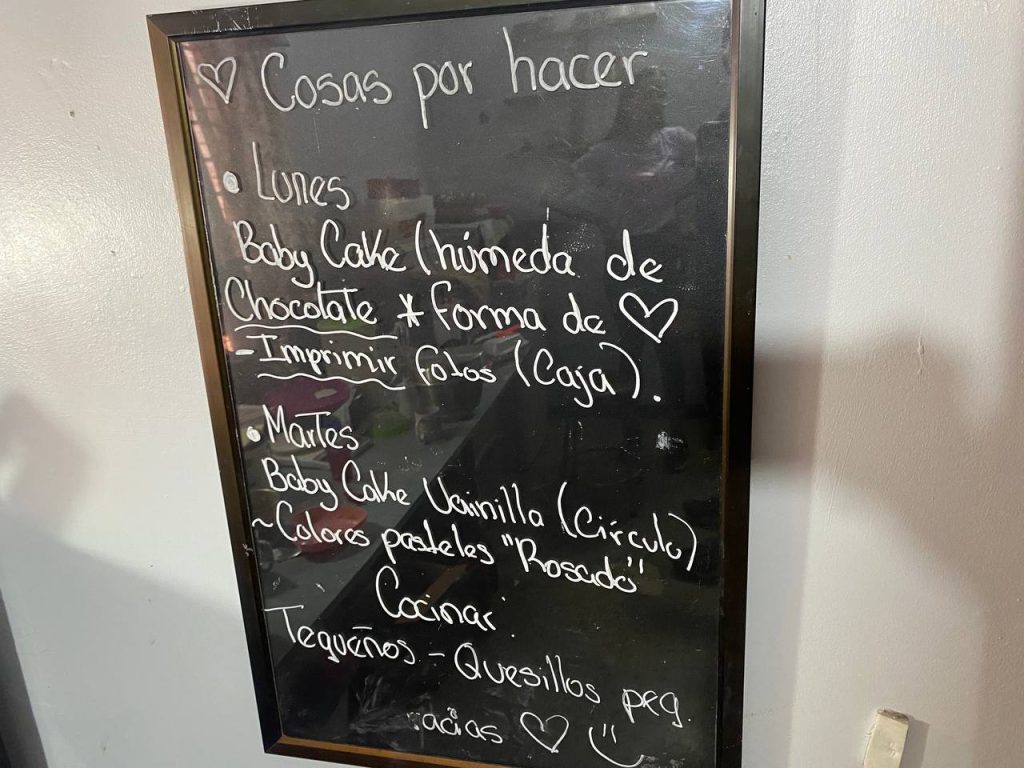 ♡ Cosas por hacer
• Lunes
Baby Cake (húmeda de
Chocolate * forma de ♡
- Imprimir fotos (Caja).
• Martes
Baby Cake Vainilla (Círculo)
~ Colores pasteles "Rosado"
Cocinar:
Tequeños - Quesillos peq.
racias ♡ :)